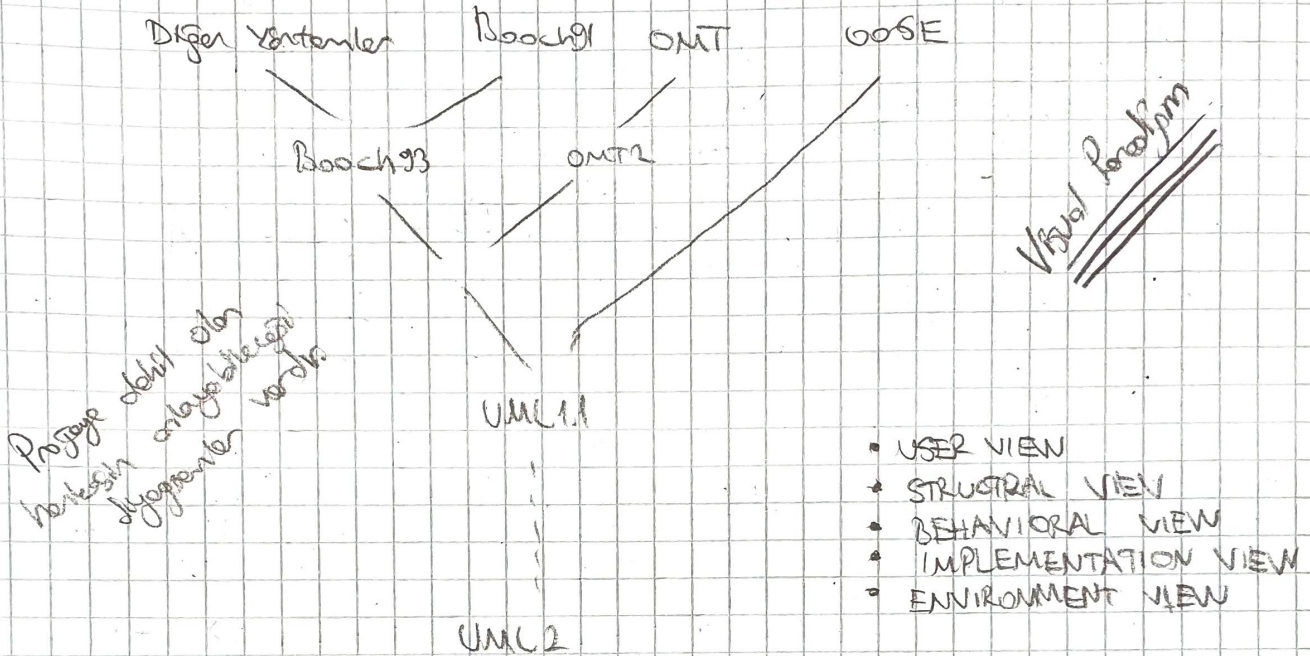 Diğer Yöntemler Booch91 OMT OOSE
Booch93 OMT2
Visual Paradigm
Projeye dahil olan
herkesin anlayabileceği
diyagramlar vardır
UML1.1
• USER VIEW
• STRUCTRAL VIEW
• BEHAVIORAL VIEW
• IMPLEMENTATION VIEW
• ENVIRONMENT VIEW
UML2